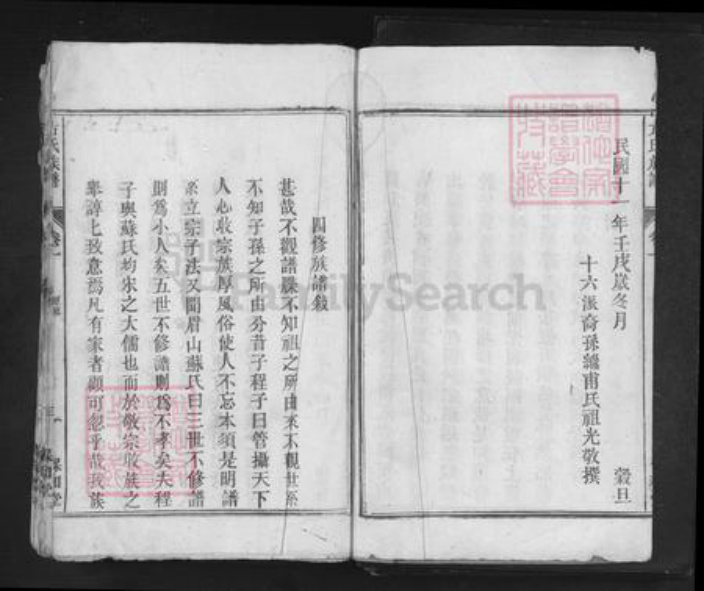 民國十一年壬戌歲冬月 穀旦
十六派裔孫繼甫氏祖光敬撰
四修族譜敘
甚哉不觀譜牒不知祖之所由來不觀世系
不知子孫之所由分昔子程子曰管攝天下
人心收宗族厚風俗使人不忘本須是明譜
系立宗子法又聞眉山蘇氏曰三世不修譜
則為小人矣五世不修譜則為不孝矣夫程
子與蘇氏均宋之大儒也而於敬宗收族之
舉諄諄致意焉凡有家者顧可忽乎哉我族
氏族譜
卷一
FamilySearch